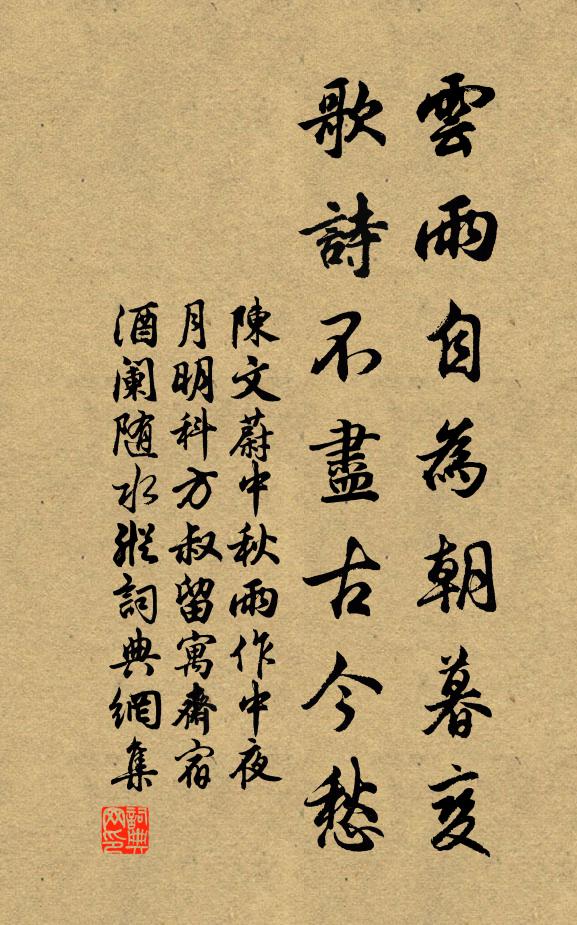 雲雨自為朝暮变
歌詩不盡古今愁
陳文蔚中秋雨作中夜
月明科方叔留寓齋宿
酒阑随水縱詞典網集
詞典
网印